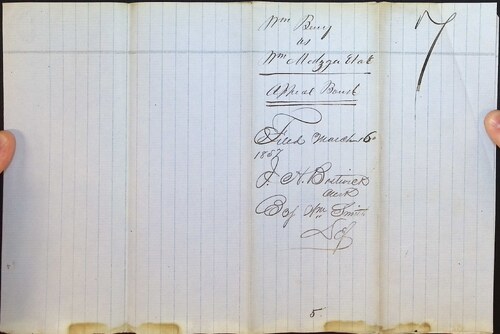 Wm Berry
vs
Wm Metzger Et al
Appeal Bond
Filed March 16
1857
J. H. Bostwick
Clerk
By Wm Smith
Dep
7
5